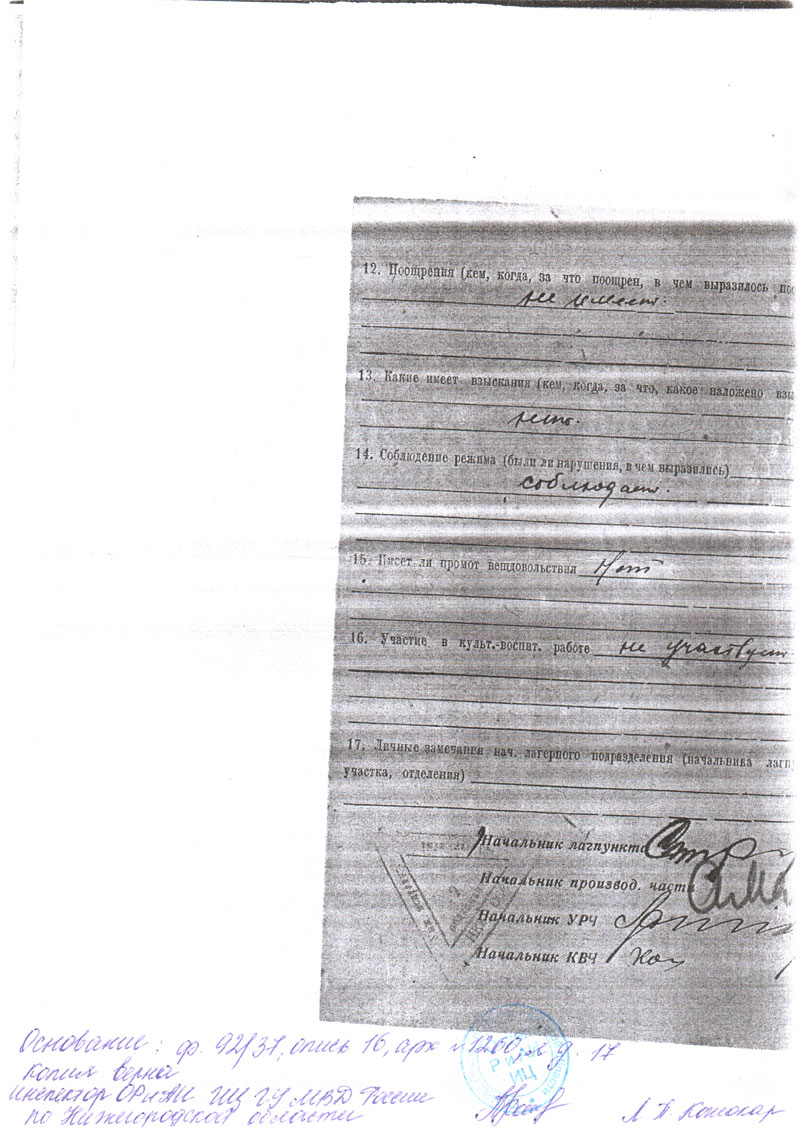 12. Поощрения (кем, когда, за что поощрен, в чем выразилось
не имеет.
13. Какие имеет взыскания (кем, когда, за что, какое наложено
нет.
14. Соблюдение режима (были ли нарушения, в чем выразились)
соблюдает.
15. Имеет ли промот вещдовольствия Нет
16. Участие в культ.-воспит. работе не участвует
17. Личные замечания нач. лагерного подразделения (начальника лагп
участка, отделения)
Начальник лагпункта
Начальник производ. части
Начальник УРЧ
Начальник КВЧ
Основание: ф. 92/37, опись 16, арх №1260, л д. 17
копия верна
инспектор ОРиАИ ИЦ ГУ МВД России
по Нижегородской области
РиАИ
ИЦ